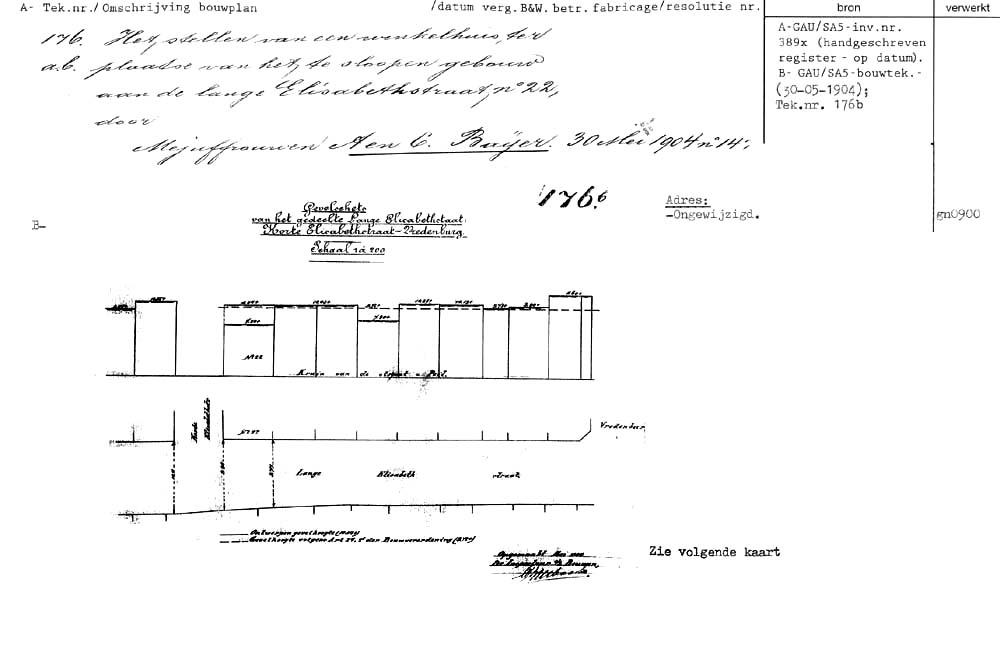 A- Tek.nr./ Omschrijving bouwplan /datum verg.B&W. betr. fabricage/resolutie nr. bron verwerkt
176. Het stellen van een winkelhuis, ter
a.b. plaatse van het te sloopen gebouw
aan de lange Elisabethstraat, no 22,
door
Mejuffrouwen A en C. Baijer. 30 Mei 1904 no 14.
A-GAU/SA5-inv.nr.
389x (handgeschreven
register - op datum).
B- GAU/SA5-bouwtek.-
(30-05-1904);
Tek.nr. 176b
B-
176b
Adres:
-Ongewijzigd.
gn0900
Gevelschets
van het gedeelte Lange Elisabethstraat:
Korte Elisabethstraat-Vredenburg.
Schaal 1 à 200
No 22
Kruin van de straat
Korte
Elisabeth
Vredenburg
Lange Elisabeth straat
Ontworpen gevelhoogte
Gevelhoogte volgens Art. der Bouwverordening
Opgemaakt Mei
De Ingenieur
Zie volgende kaart